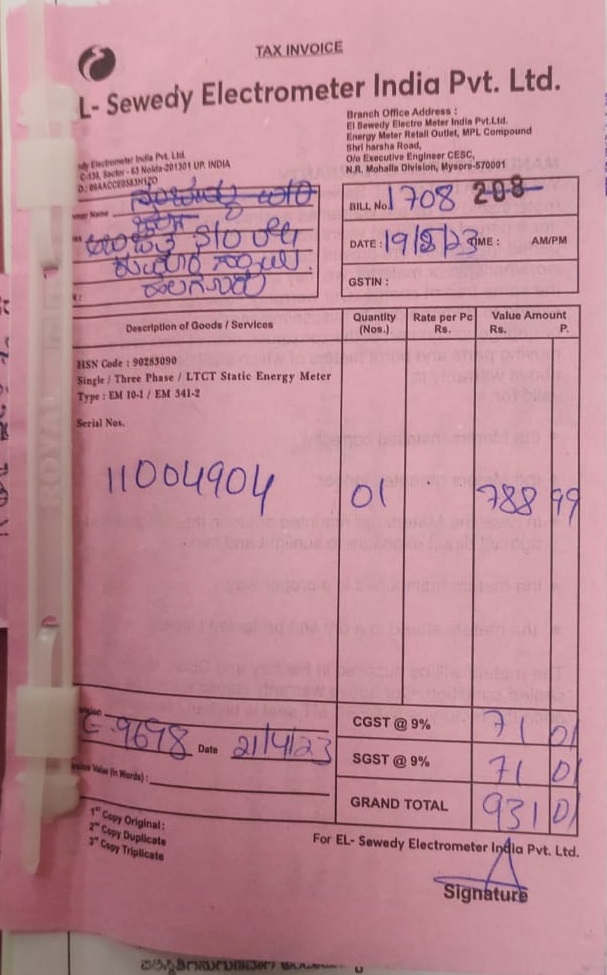 TAX INVOICE
L- Sewedy Electrometer India Pvt. Ltd.
dy Electrometer India Pvt. Ltd.
C-134, Sector - 63 Noida-201301 UP. INDIA
Branch Office Address :
El Sewedy Electro Meter India Pvt.Ltd.
Energy Meter Retail Outlet, MPL Compound
Shri harsha Road,
O/o Executive Engineer CESC,
N.R. Mohalla Division, Mysore-570001
Name
S/o
BILL No. 1708 208
DATE : 19/8/23 TIME : AM/PM
GSTIN :
Description of Goods / Services
Quantity (Nos.)
Rate per Pc Rs.
Value Amount Rs. P.
HSN Code : 90283090
Single / Three Phase / LTCT Static Energy Meter
Type : EM 10-1 / EM 341-2
Serial Nos.
11004904 01 788 99
9698 Date 21/4/23
Value (in Words) :
CGST @ 9% 71 01
SGST @ 9% 71 01
GRAND TOTAL 931 01
1st Copy Original :
2nd Copy Duplicate
3rd Copy Triplicate
For EL- Sewedy Electrometer India Pvt. Ltd.
Signature